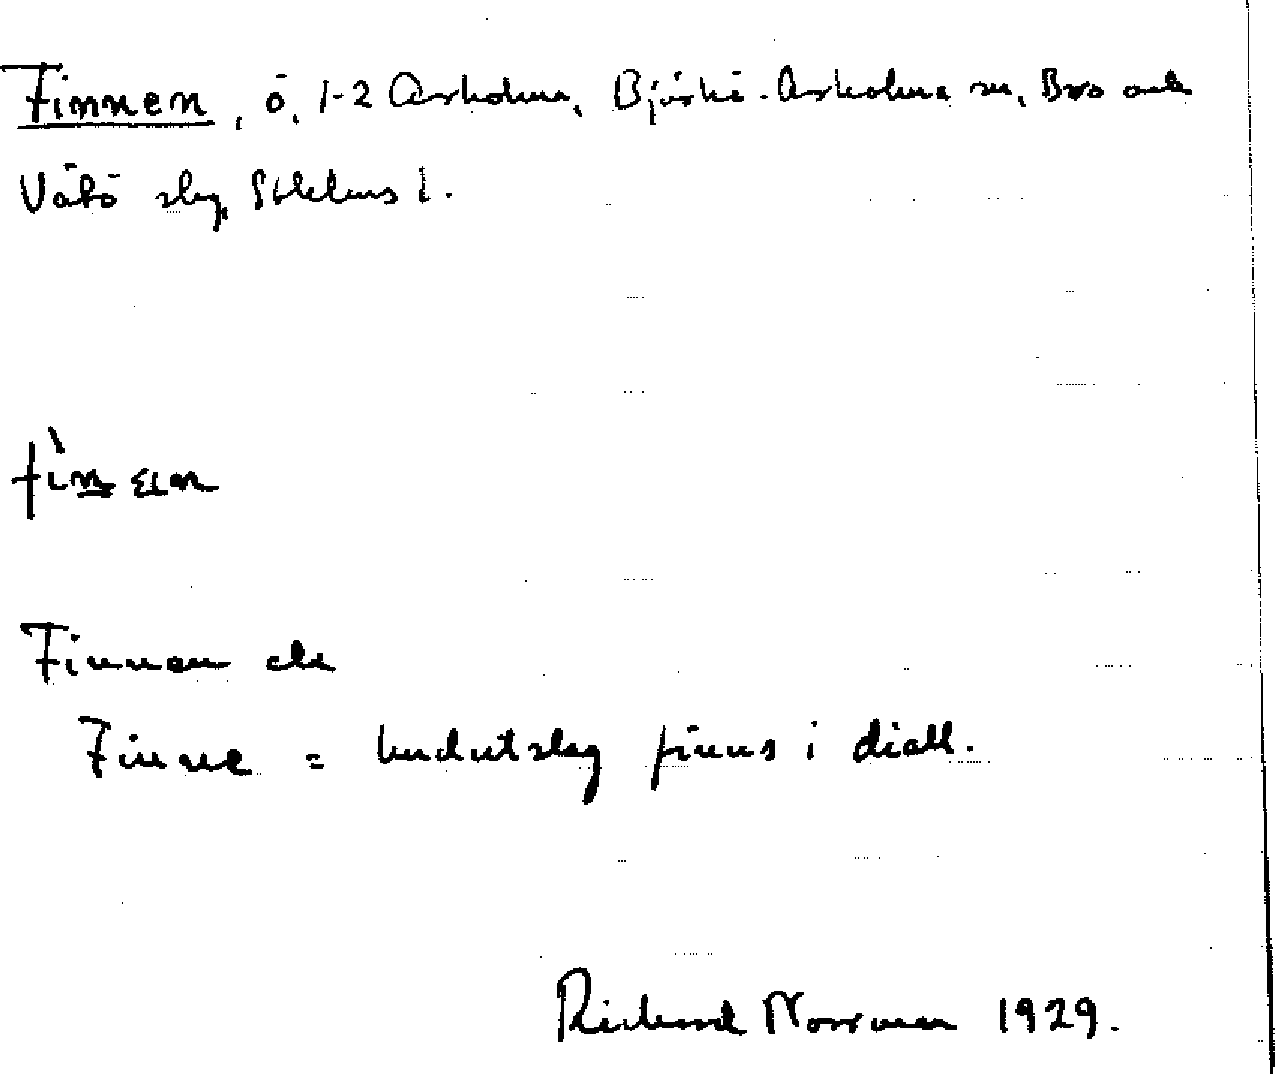 Finnen, ö, 1-2 Arholma, Björkö-Arholma sn, Bro och
Vätö skg, Sthlms l.
Finnen ele
Finne = hudutslag finns i diall.
Richard Norrman 1929.